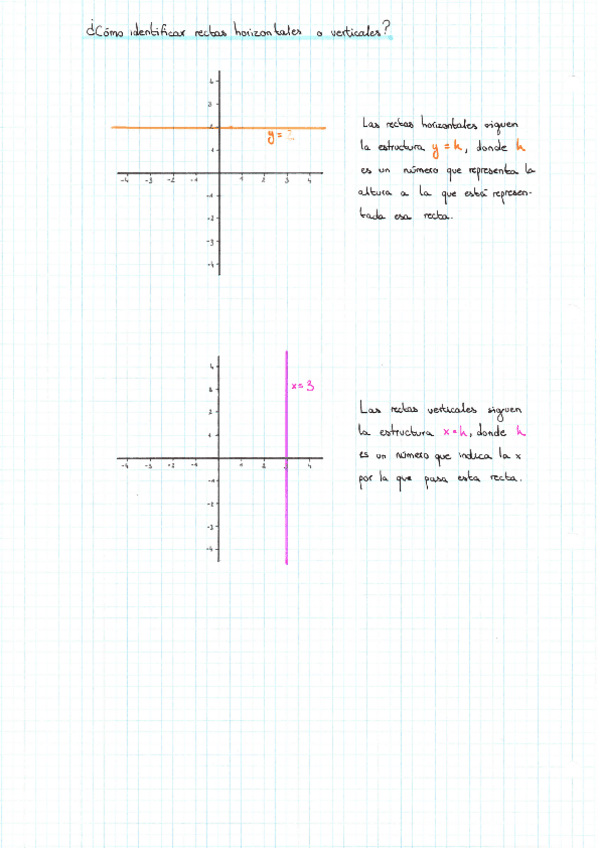 ¿Cómo identificar rectas horizontales o verticales?
4
3
2
y =
1
-4 -3 -2 -1 1 2 3 4
-1
-2
-3
-4
Las rectas horizontales siguen
la estructura y = k, donde k
es un número que representa la
altura a la que está represen-
tada esa recta.
4
3
x = 3
2
1
-4 -3 -2 -1 1 2 3 4
-1
-2
-3
-4
Las rectas verticales siguen
la estructura x = k, donde k
es un número que indica la x
por la que pasa esta recta.